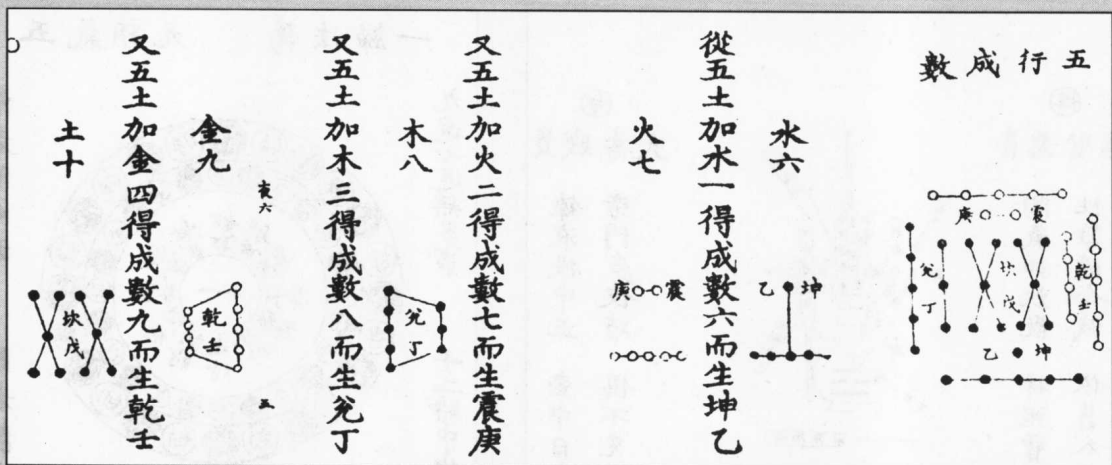 五行成數
震庚
乾壬
坎戊
兌丁
坤乙
水六
坤乙
從五土加水一得成數六而生坤乙
火七
震庚
又五土加火二得成數七而生震庚
木八
兌丁
又五土加木三得成數八而生兌丁
亥六
五
金九
乾壬
又五土加金四得成數九而生乾壬
土十
坎戊